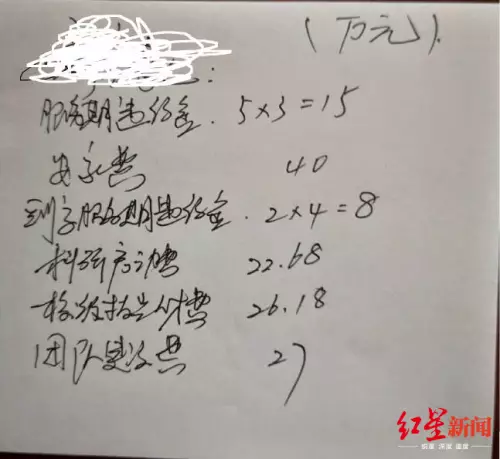 (万元).
服务期违约金. 5×3=15
安家费 40
服务期违约金. 2×4=8
科研启动费 22.68
费 26.18
团队建设费 27
红星新闻
深度